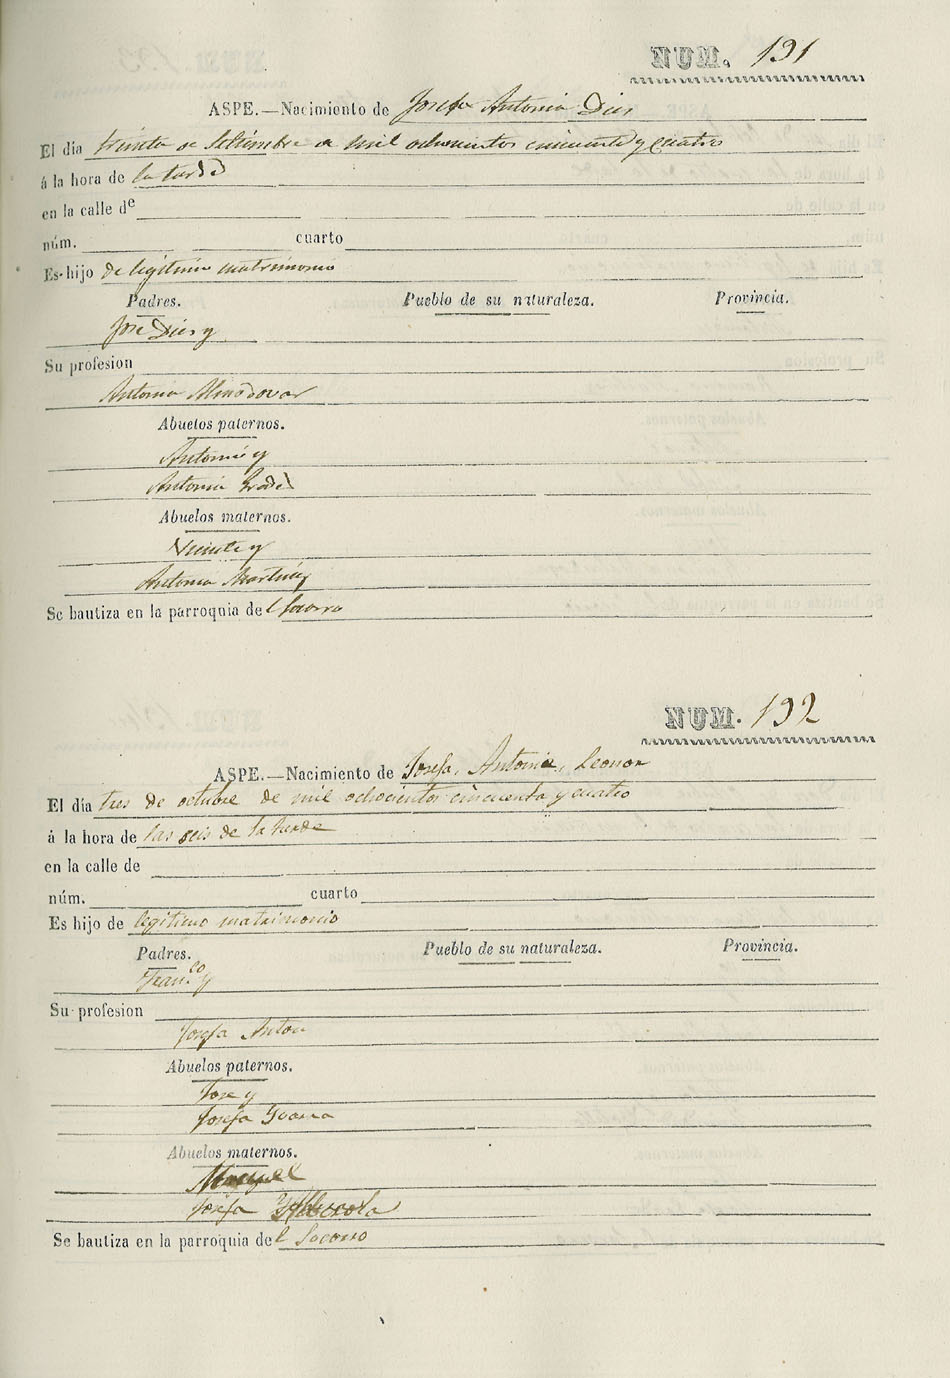 NUM. 191
ASPE.—Nacimiento de Josefa Antonia Dies
El dia treinta de Setiembre de mil ochocientos cincuenta y cuatro
á la hora de la tarde
en la calle de
núm. cuarto
Es hijo de legitimo matrimonio
Padres. Pueblo de su naturaleza. Provincia.
José Dies y
Su profesion
Antonia Almodovar
Abuelos paternos.
Antonio y
Antonia
Abuelos maternos.
Vicente y
Antonia Martinez
Se bautiza en la parroquia del Socorro
NUM. 192
ASPE.—Nacimiento de Josefa, Antonia, Leonor
El día tres de octubre de mil ochocientos cincuenta y cuatro
á la hora de las seis de la tarde
en la calle de
núm. cuarto
Es hijo de legitimo matrimonio
Padres. Pueblo de su naturaleza. Provincia.
Fran.co y
Su profesion
Josefa Anton
Abuelos paternos.
Jose y
Josefa
Abuelos maternos.
Manuel
Josefa
Se bautiza en la parroquia del Socorro